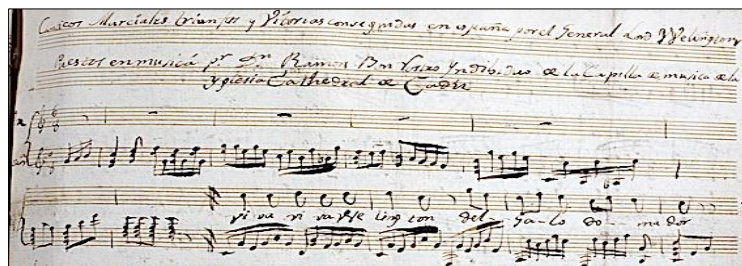 Marciales triunfos y Vitorias conseguidas en españa por el General Lord Welington
Puestos en musica pr. Dn. Ramon Yndibiduo de la Capilla de musica de la
Yglesia Cathedral de Cadiz
vi va vi va We ling ton del Ga-lo do ma dor